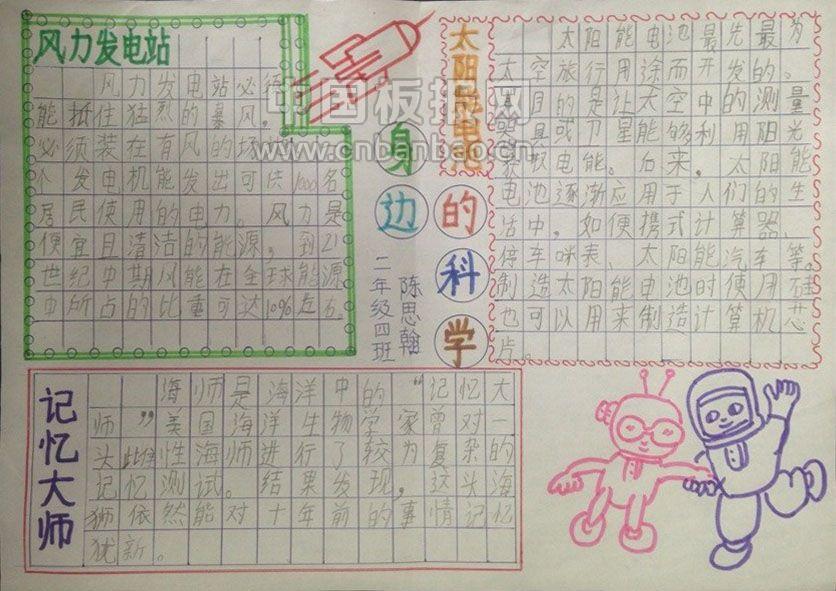 风力发电站
风力发电站必须
能抵住猛烈的暴风。
必须装在有风的场
个发电机能发出可供1000名
居民使用的电力。风力是
便宜且清洁的能源，到21
世纪中期风能在全球能源
中所占的比重可达10%左右。
身边的科学
二年级四班
陈思翰
太阳能电池
太阳能电池最先最为
太空旅行用途而开发的。
其目的是让太空中的测量
器具或卫星能够利用阳光
获取电能。后来，太阳能
电池逐渐应用于人们的生
活中。如便携式计算器、
停车咪表、太阳能汽车等。
制造太阳能电池时使用硅
也可以用来制造计算机芯
片。
记忆大师
海师是海洋中的“记忆大
师”美国海洋生物学家曾对一
头雌性海师进行了较为复杂的
记忆测试。结果发现，这头海
狮依然能对十年前的事情记忆
犹新。
中国板报网
www.cnbanbao.cn